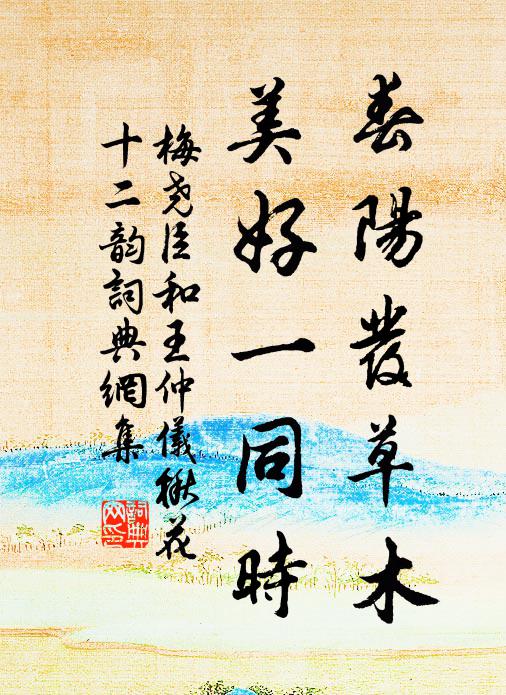 春陽發草木
美好一同時
梅堯臣和王仲儀楸花
十二韵詞典網集
詞典网印